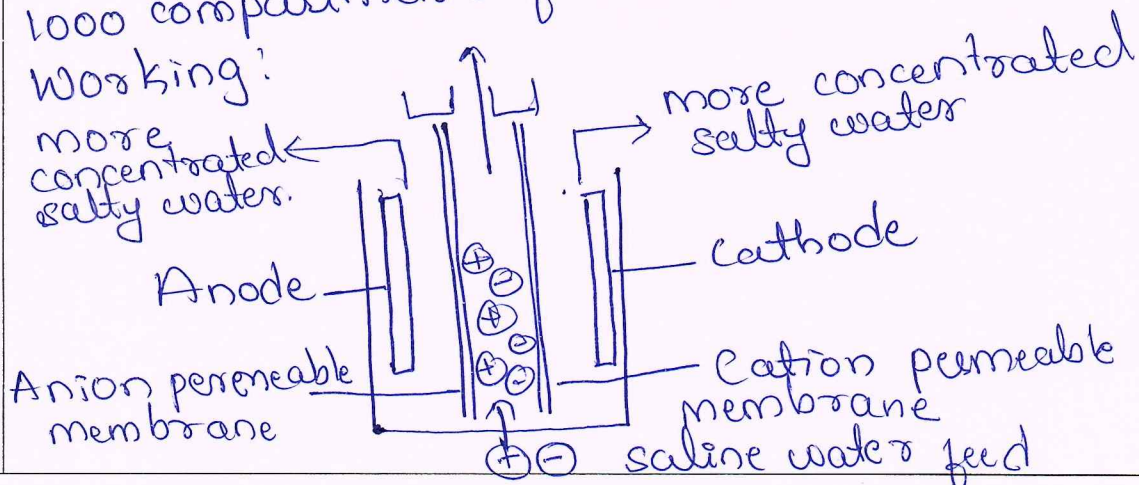 1000
Working:
more
concentrated
salty water.
more concentrated
salty water
Anode
Cathode
Anion pereneable
membrane
Cation pumeable
membrane
saline water feed